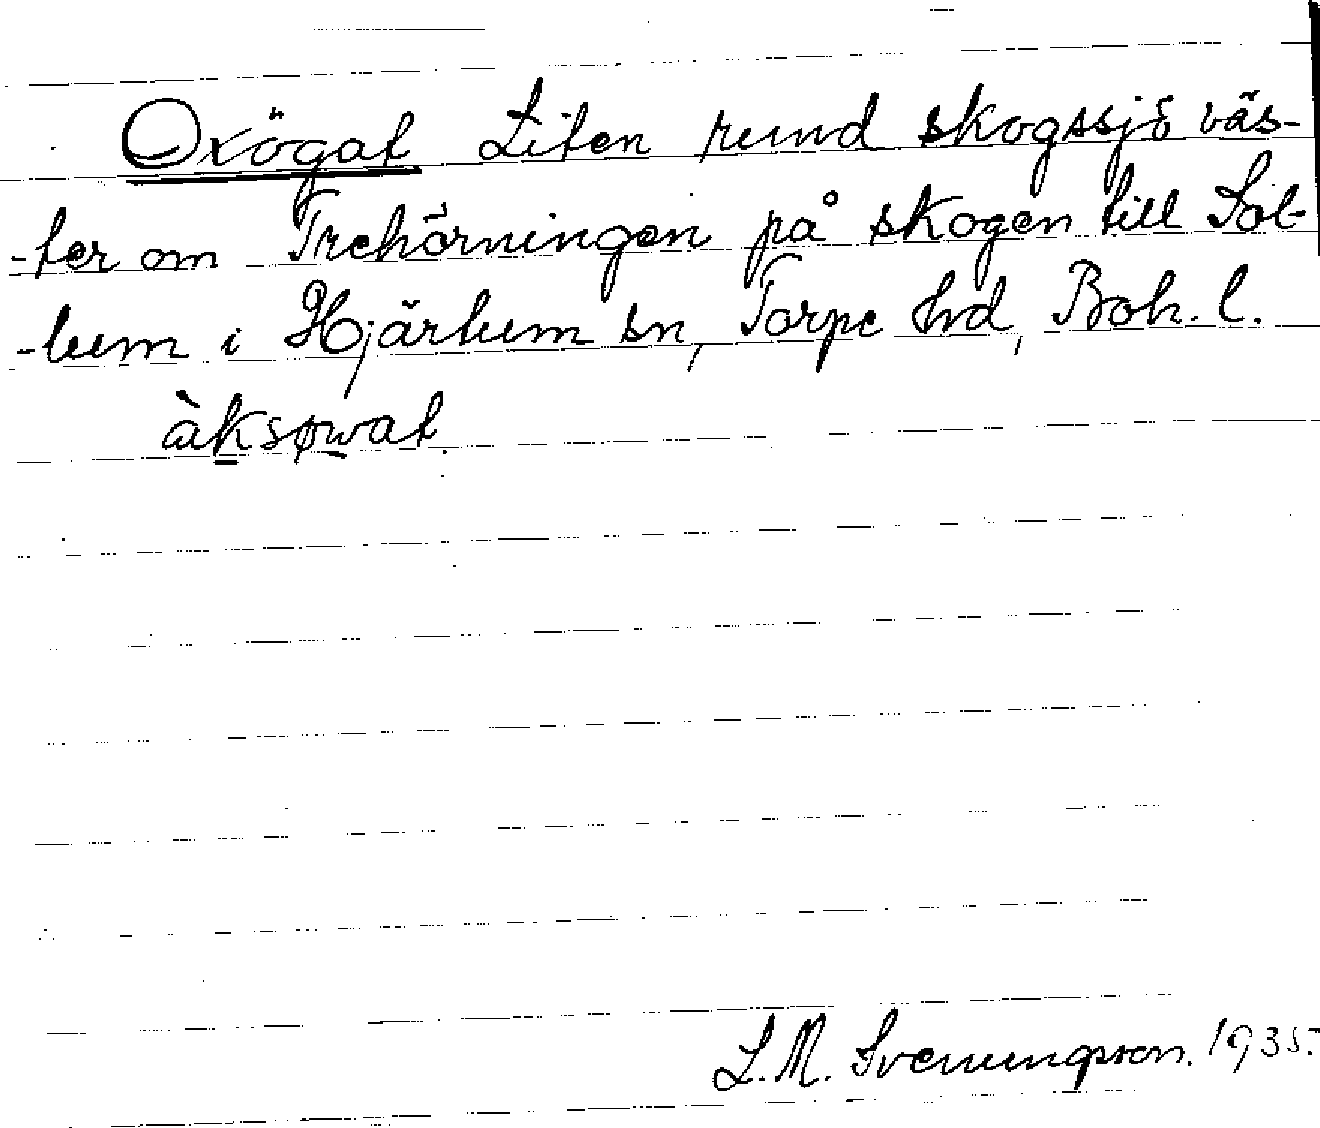 Oxögat Liten rund skogssjö väs-
-ter om Trehörningen på skogen till Sol-
-lum i Hjärtum sn, Torpe hd, Boh. l.
àksøwat
L. M. Svenungsson. 1935.